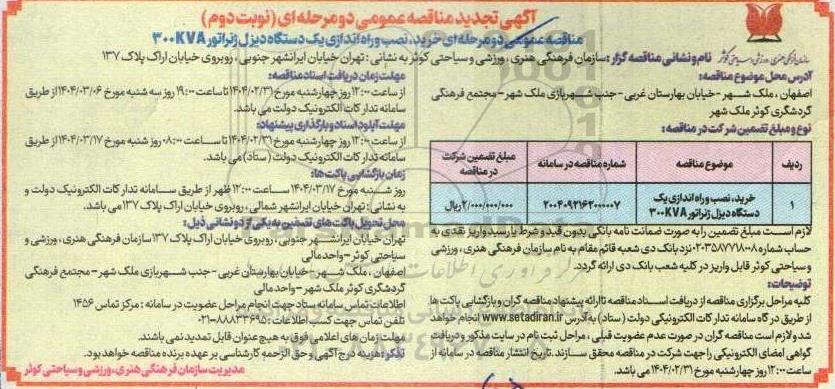 آگهی تجدید مناقصه عمومی دو مرحله ای (نوبت دوم)
مناقصه عمومی دو مرحله ای خرید، نصب و راه اندازی یک دستگاه دیزل ژنراتور ۳۰۰KVA
نام و نشانی مناقصه گزار: سازمان فرهنگی هنری، ورزشی و سیاحتی کوثر به نشانی: تهران خیابان ایرانشهر جنوبی، روبروی خیابان اراک پلاک ۱۳۷
آدرس محل موضوع مناقصه:
اصفهان، ملک شهر - خیابان بهارستان غربی - جنب شهربازی ملک شهر - مجتمع فرهنگی
گردشگری کوثر ملک شهر
نوع و مبلغ تضمین شرکت در مناقصه:
ردیف
موضوع مناقصه
شماره مناقصه در سامانه
مبلغ تضمین شرکت
در مناقصه
۱
خرید، نصب و راه اندازی یک
دستگاه دیزل ژنراتور ۳۰۰KVA
۲۰۰۴۰۹۲۱۶۲۰۰۰۰۰۷
۲/۰۰۰/۰۰۰/۰۰۰ ریال
لازم است مبلغ تضمین را به صورت ضمانت نامه بانکی بدون قید و شرط یا رسید واریز نقدی به
حساب شماره ۲۰۳۵۸۷۷۱۸۰۰۸ نزد بانک دی شعبه قائم مقام به نام سازمان فرهنگی هنری، ورزشی
و سیاحتی کوثر قابل واریز در کلیه شعب بانک دی ارائه گردد.
توضیحات:
کلیه مراحل برگزاری مناقصه از دریافت اسناد مناقصه تا ارائه پیشنهاد مناقصه گران و بازگشایی پاکت ها
از طریق درگاه سامانه تدارکات الکترونیکی دولت (ستاد) به آدرس www.setadiran.ir انجام خواهد
شد و لازم است مناقصه گران در صورت عدم عضویت قبلی، مراحل ثبت نام در سایت مذکور و دریافت
گواهی امضای الکترونیکی را جهت شرکت در مناقصه محقق سازند. تاریخ انتشار مناقصه در سامانه از
ساعت ۱۲:۰۰ روز چهارشنبه مورخ ۱۴۰۴/۰۲/۳۱ می باشد.
مهلت زمان دریافت اسناد مناقصه:
از ساعت ۱۲:۰۰ روز چهارشنبه مورخ ۱۴۰۴/۰۲/۳۱ تا ساعت ۱۹:۰۰ روز سه شنبه مورخ ۱۴۰۴/۰۳/۰۶ از طریق
سامانه تدارکات الکترونیک دولت می باشد.
مهلت آپلود اسناد و بارگذاری پیشنهاد:
از ساعت ۱۲:۰۰ روز چهارشنبه مورخ ۱۴۰۴/۰۲/۳۱ تا ساعت ۰۸:۰۰ روز شنبه مورخ ۱۴۰۴/۰۳/۱۷ از طریق
سامانه تدارکات الکترونیک دولت (ستاد) می باشد.
زمان بازگشایی پاکت ها:
روز شنبه مورخ ۱۴۰۴/۰۳/۱۷ ساعت ۱۲:۰۰ ظهر از طریق سامانه تدارکات الکترونیک دولت و
به نشانی: تهران خیابان ایرانشهر شمالی، روبروی خیابان اراک پلاک ۱۳۷ می باشد.
محل تحویل پاکت های تضمین به یکی از دو نشانی ذیل:
تهران خیابان ایرانشهر جنوبی، روبروی خیابان اراک پلاک ۱۳۷ سازمان فرهنگی هنری، ورزشی و
سیاحتی کوثر - واحد مالی
اصفهان، ملک شهر - خیابان بهارستان غربی - جنب شهربازی ملک شهر - مجتمع فرهنگی
گردشگری کوثر ملک شهر - واحد مالی
اطلاعات تماس سامانه ستاد جهت انجام مراحل عضویت در سامانه: مرکز تماس ۱۴۵۶
تلفن تماس جهت کسب اطلاعات: ۸۸۸۳۳۶۹۵-۰۲۱
مهلت زمان های اعلامی فوق به هیچ عنوان قابل تمدید نمی باشند.
تذکر: هزینه درج آگهی و حق الزحمه کارشناسی بر عهده برنده مناقصه خواهد بود.
مدیریت سازمان فرهنگی هنری، ورزشی و سیاحتی کوثر